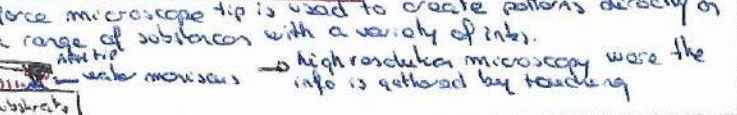 force microscope tip is used to create patterns directly on
a range of substances with a variety of inks.
AFM tip
water meniscus → high resolution microscopy were the
info is gathered by touching
substrate